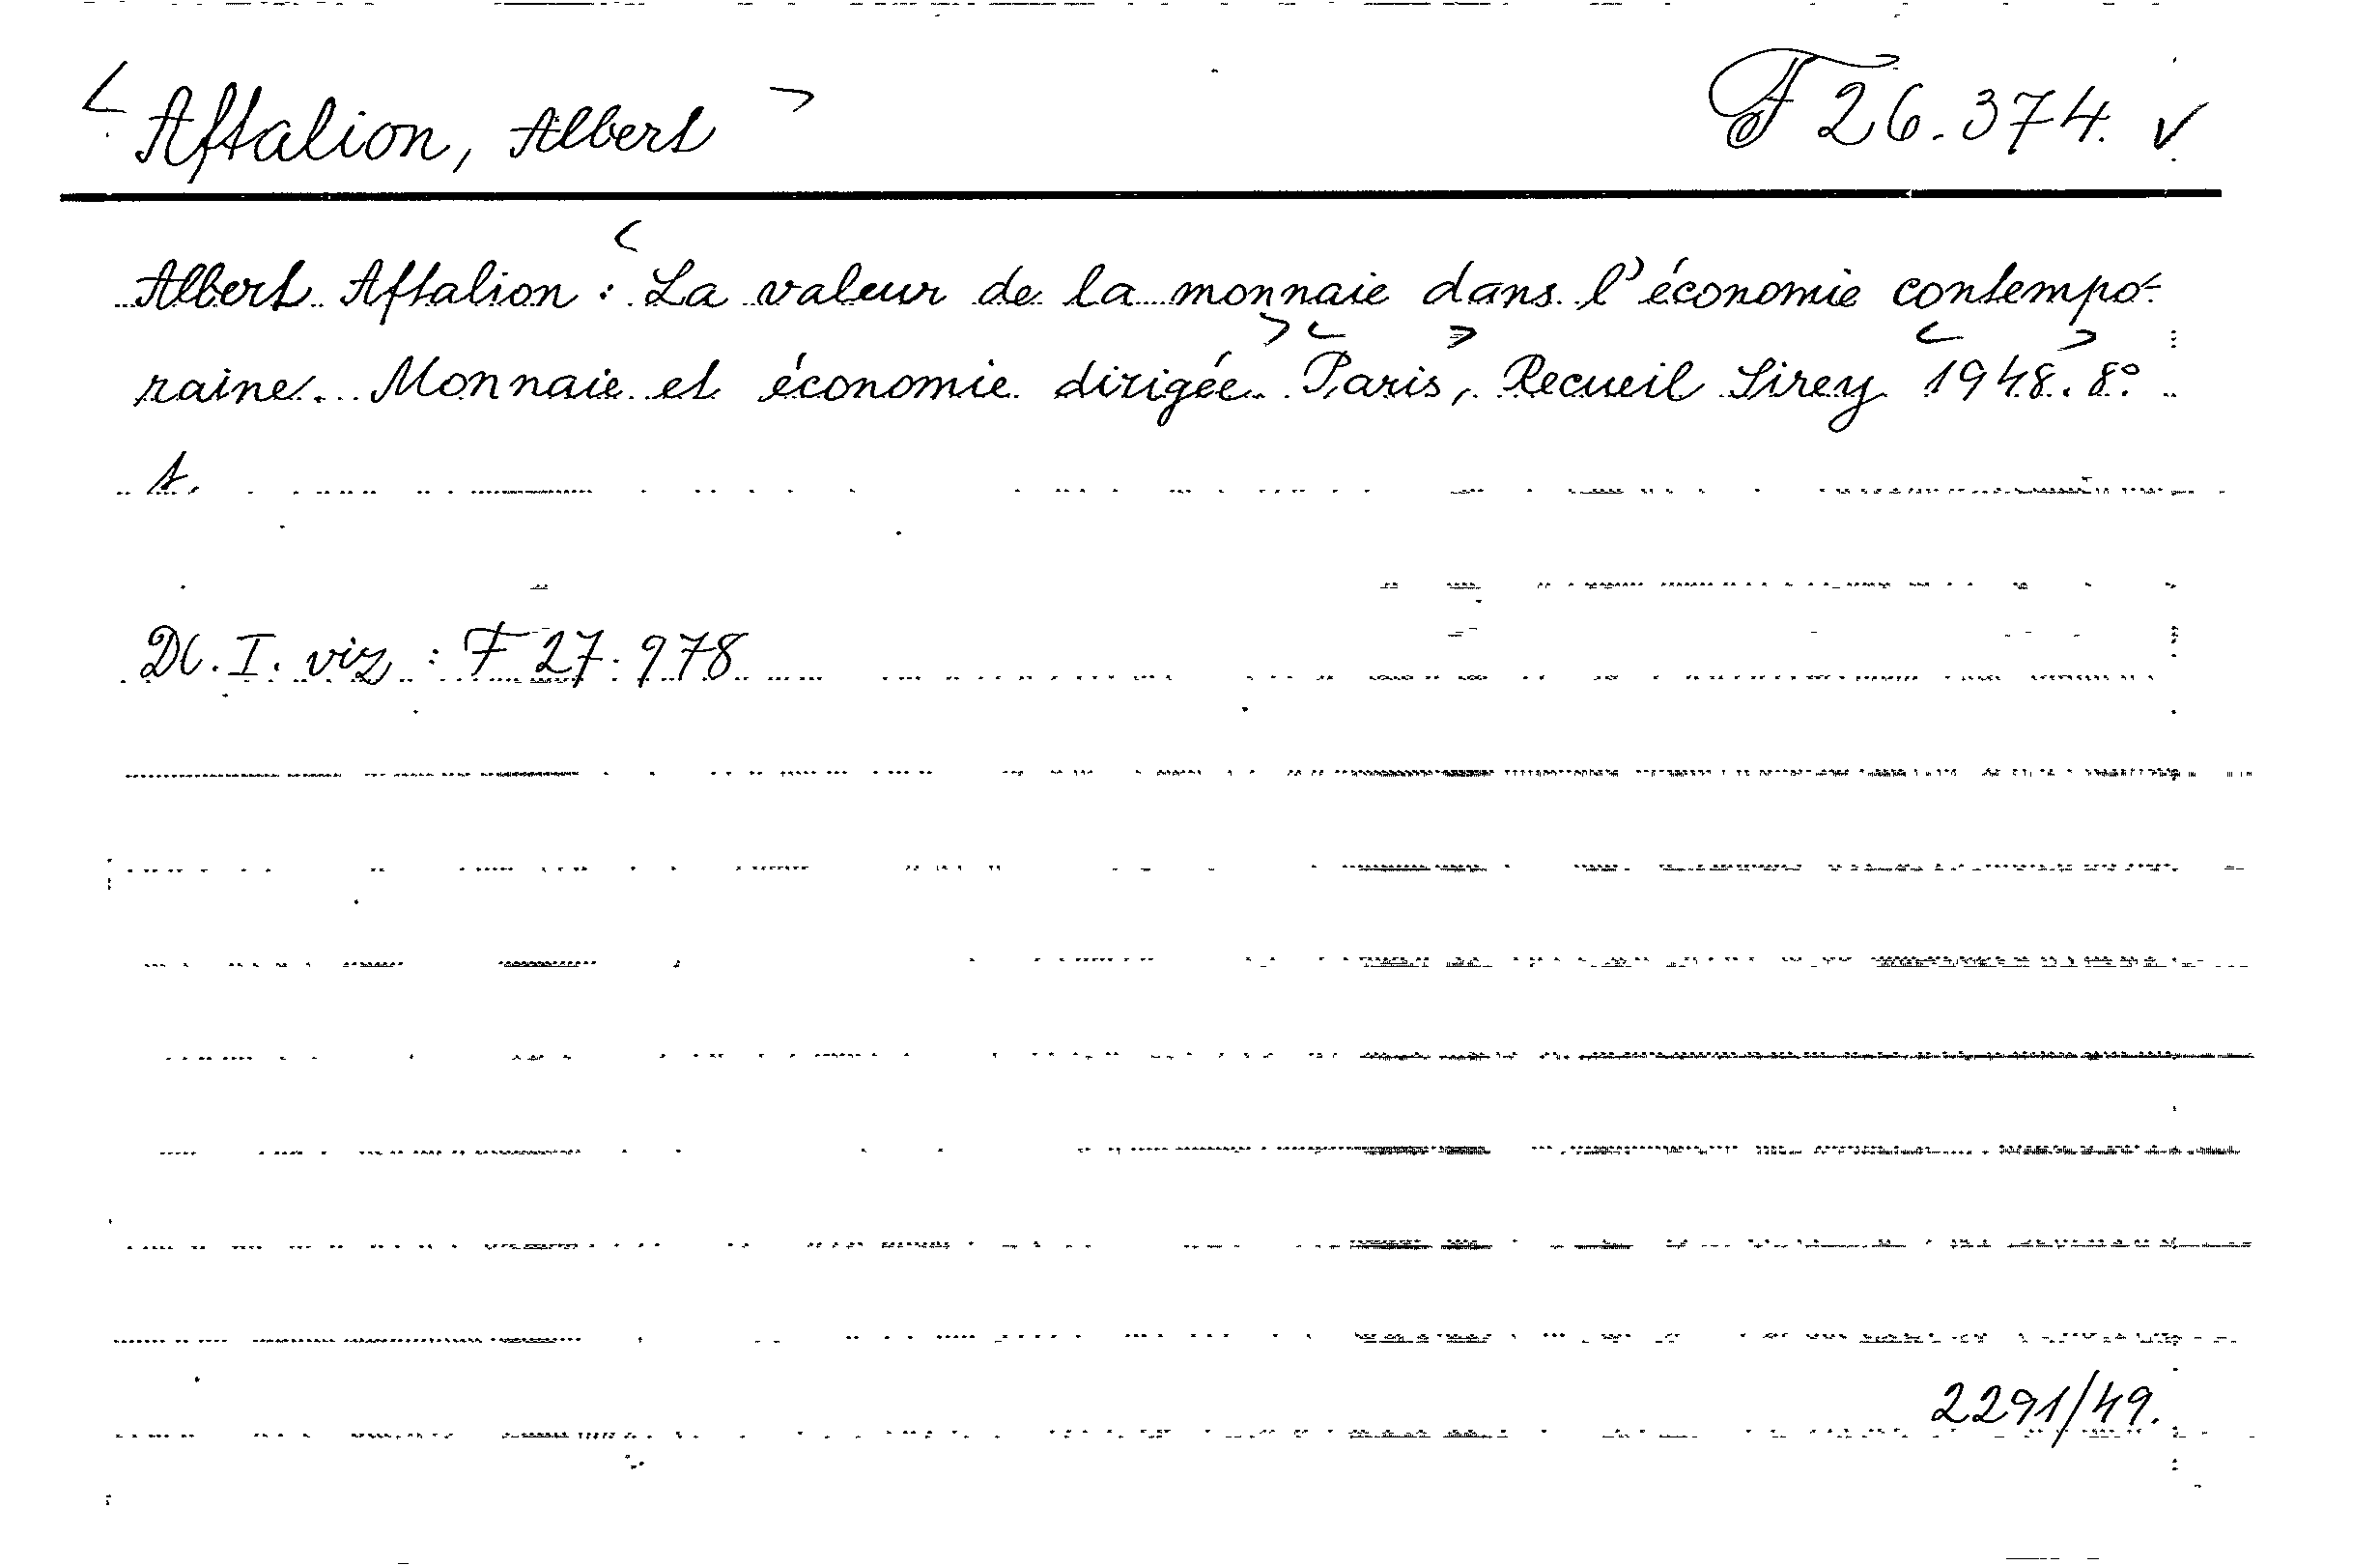 < Aftalion, Albert > F 26.374. √
Albert Aftalion : < La valeur de la monnaie dans l'économie contempo-
raine. Monnaie et économie dirigée. > < Paris >, Recueil Sirey < 1948 >. 8°
A.
Dl. I. viz : F 27.978
2291/49.